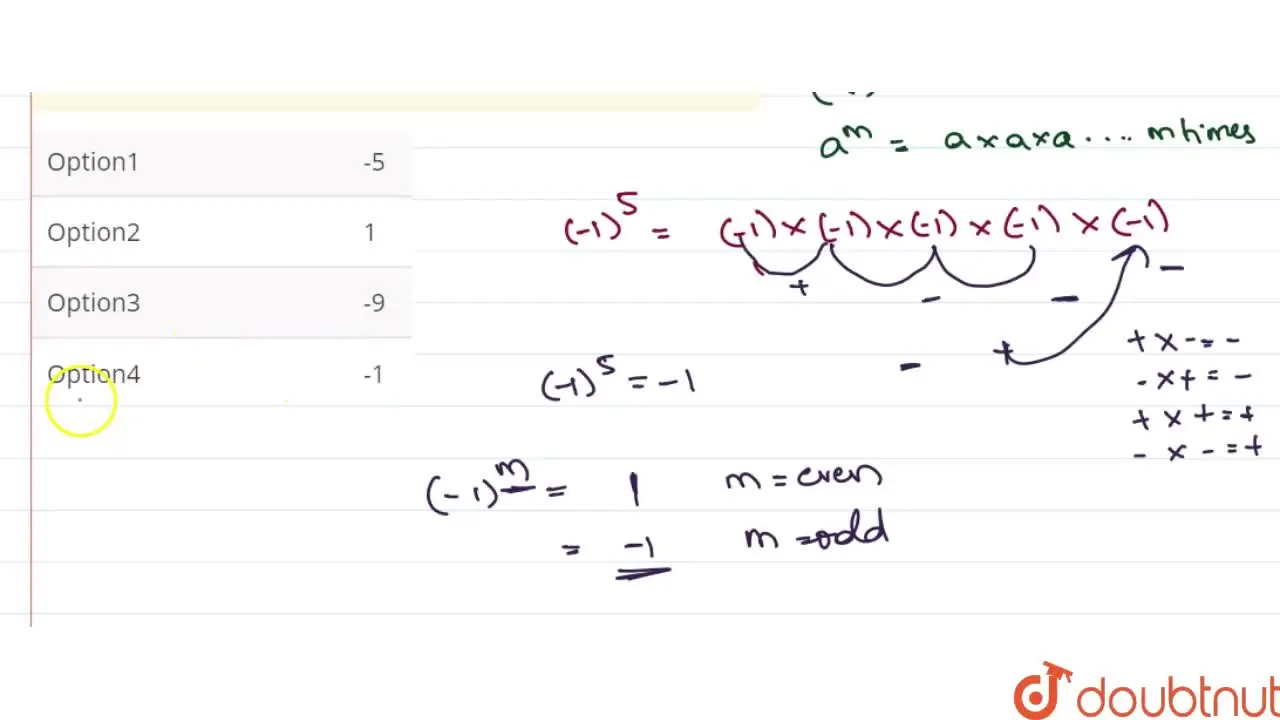 Option1 -5
Option2 1
Option3 -9
Option4 -1
a^m = a x a x a .... m times
(-1)^5 = (-1) x (-1) x (-1) x (-1) x (-1)
+ - - -
- +
(-1)^5 = -1
+ x - = -
- x + = -
+ x + = +
- x - = +
(-1)^m = 1 m = even
= -1 m = odd
doubtnut